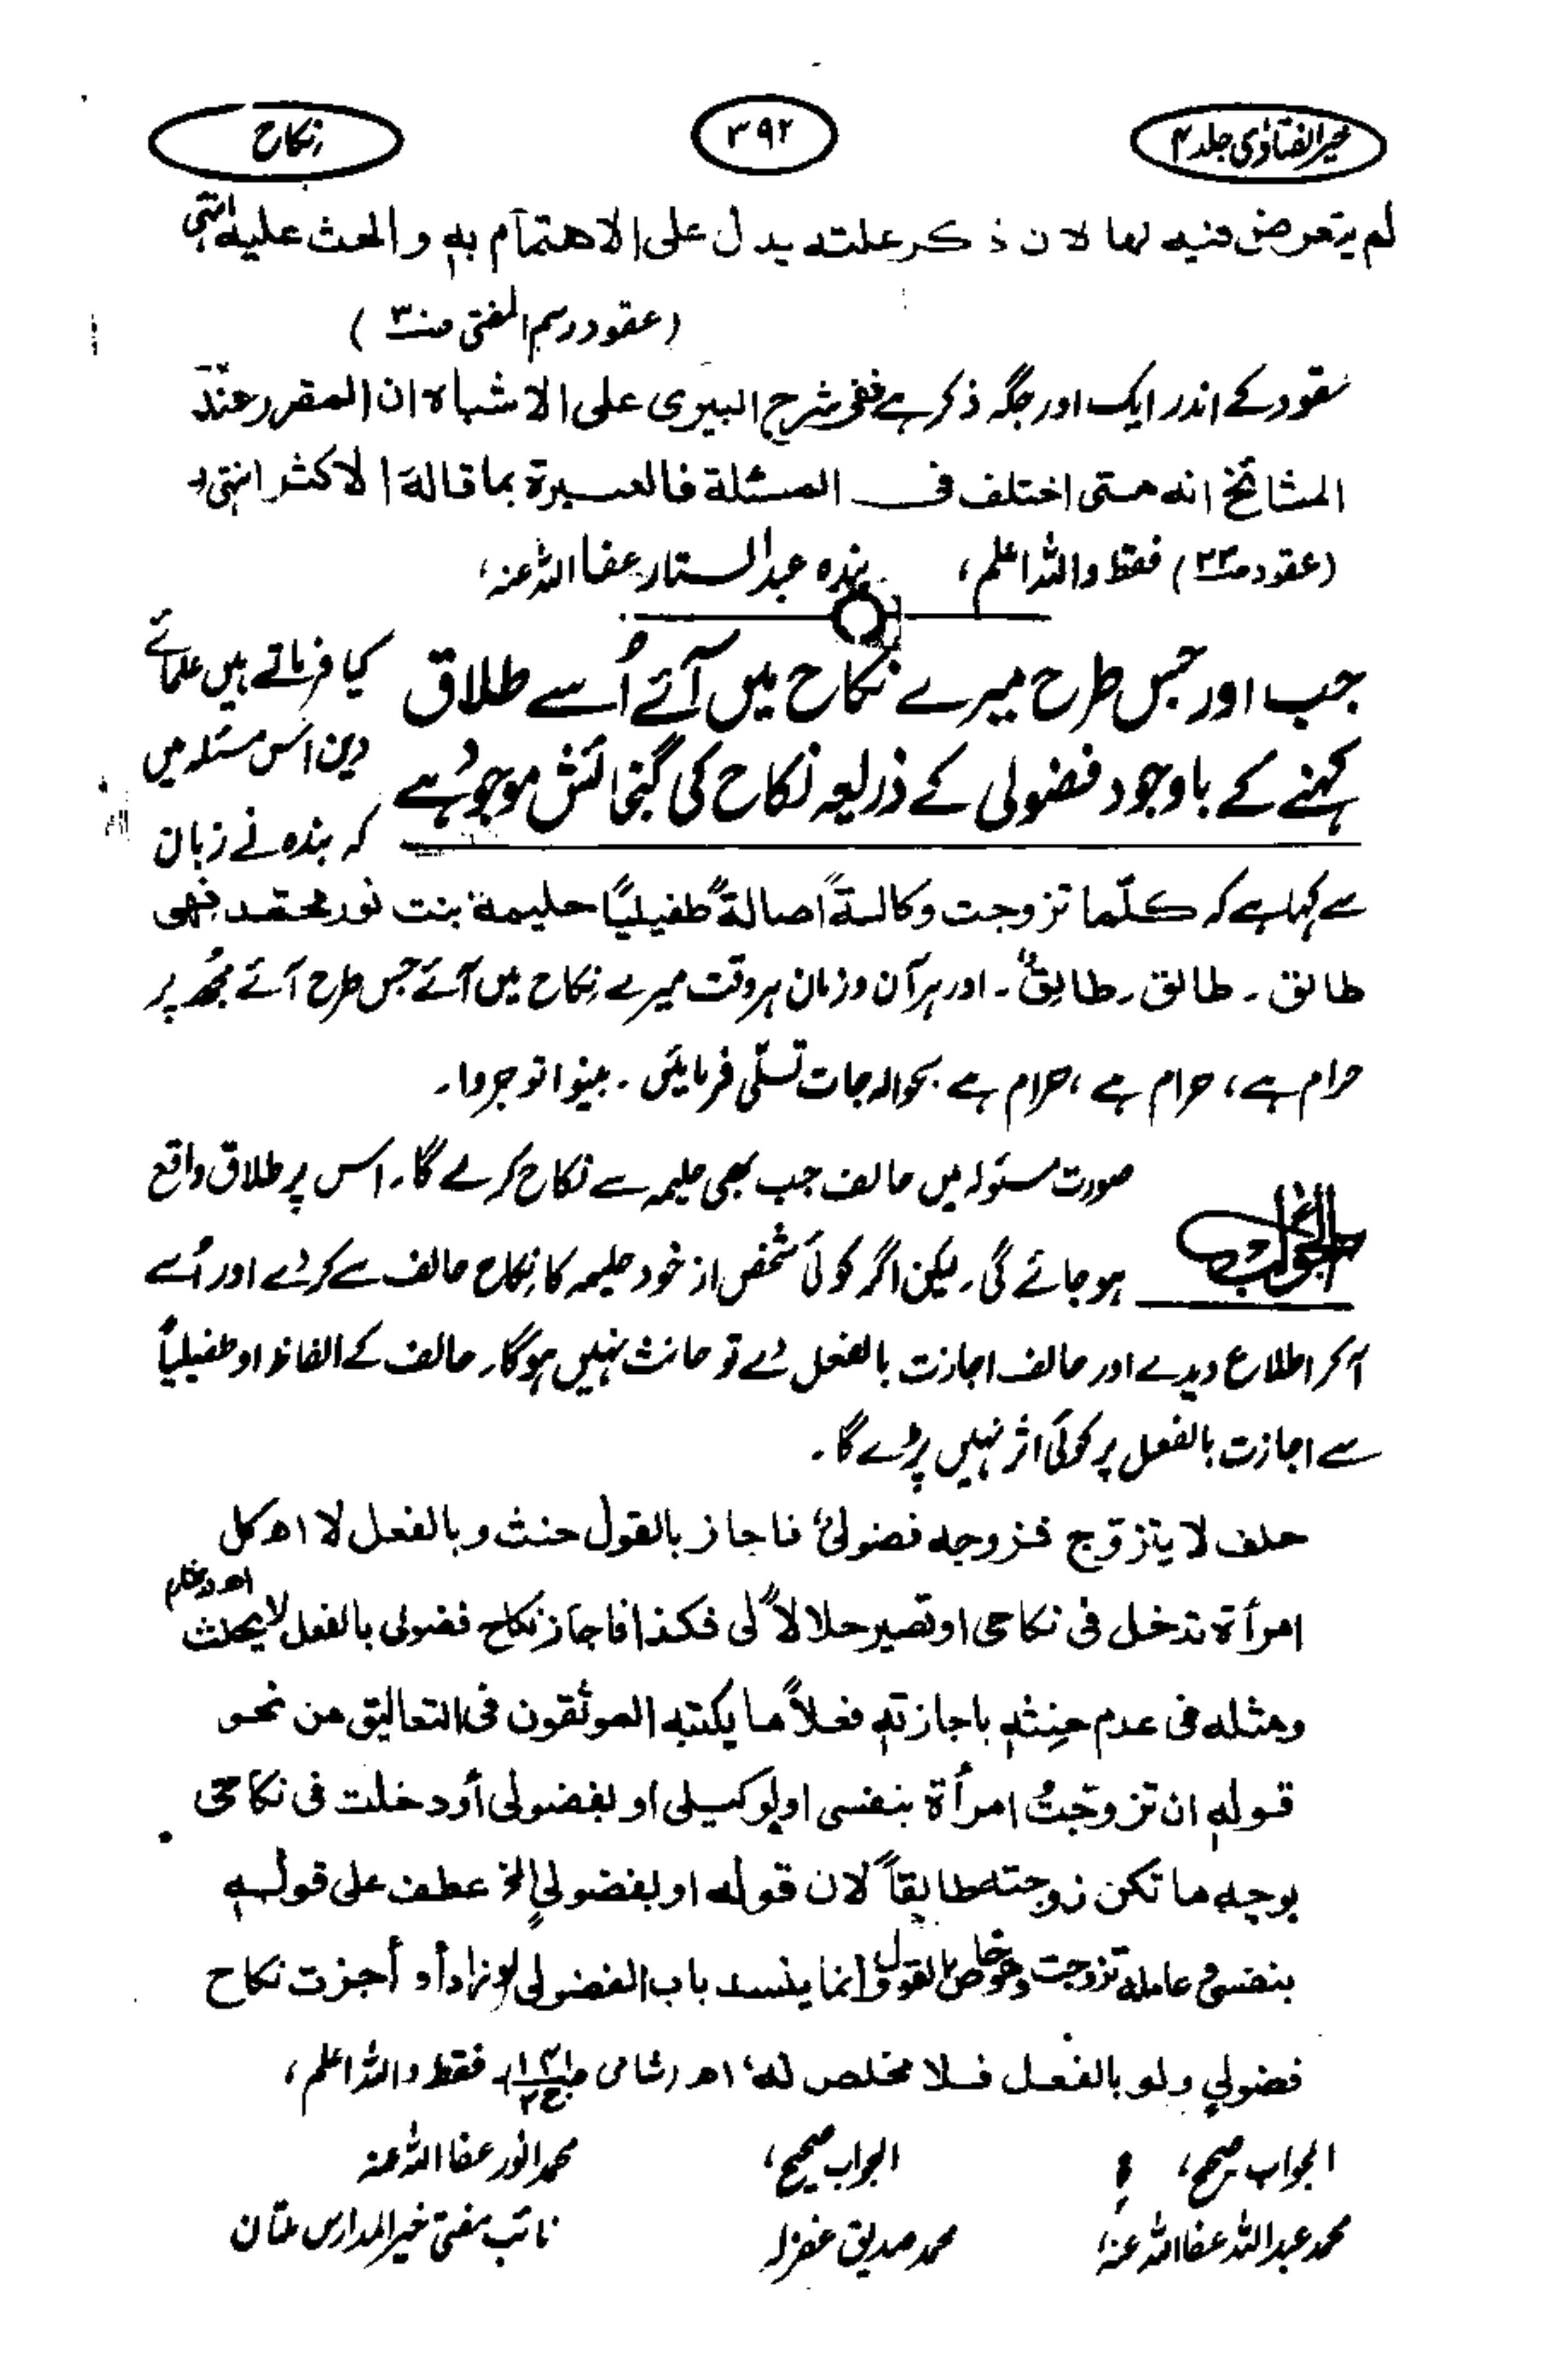 خیر الفتاوٰی جلد ۴
۳۹۲
نکاح
لم یتعرض فیہ لھا لان ذکر علتہ یدل علی الاھتمام بہ والحث علیہ انتہی
(عقود رسم المفتی صـ۳۰)
عقود کے اندر ایک اور جگہ ذکر ہے ففی شرح البیری علی الاشباہ ان المقرر عند
المشائخ انہ متی اختلف فی المسئلة فالعبرة بما قالہ الاکثر انتہی۔
(عقود صـ۳۳) فقط واللہ اعلم، بندہ عبدالستار عفا اللہ عنہ،
جب اور جس طرح میرے نکاح میں آئے اُسے طلاق
کہنے کے باوجود فضولی کے ذریعہ نکاح کی گنجائش موجود ہے
کیا فرماتے ہیں علمائے
دین اس مسئلہ میں
کہ بندہ نے زبان
سے کہا ہے کہ کلّما تزوجت وکالۃً اصالۃً طفیلیاً حلیمۃ بنت نور محمد فھی
طالق۔ طالق۔ طالقٌ۔ اور ہر آن و زمان ہر وقت میرے نکاح میں آئے جس طرح آئے مجھ پر
حرام ہے، حرام ہے، حرام ہے بحوالہ جات تسلّی فرمائیں۔ بینوا توجروا۔
الجواب
صورت مسئولہ میں حالف جب بھی حلیمہ سے نکاح کرے گا۔ اس پر طلاق واقع
ہو جائے گی۔ لیکن اگر کوئی شخص از خود حلیمہ کا نکاح حالف سے کر دے اور اُسے
آکر اطلاع دیدے اور حالف اجازت بالفعل دے تو حانث نہیں ہوگا۔ حالف کے الفاظ او طفیلیاً
سے اجازت بالفعل پر کوئی اثر نہیں پڑے گا۔
حلف لا یتزوّج فزوجہ فضولیٌ فاجاز بالقول حنث وبالفعل لا اھ کل
امرأة تدخل فی نکاحی او تصیر حلالاً لی فکذا فاجاز نکاح فضولی بالفعل لا یحنث
ومثلہ فی عدم حنثہ باجازتہ فعلاً ما یکتبہ الموثقون فی التعالیق من نحو
قولہ ان تزوّجتُ امرأة بنفسی او بوکیلی او بفضولی أو دخلت فی نکاحی
بوجہ ما تکن زوجتہ طالقاً لان قولہ او بفضولی الخ عطف علی قولہ
بنفسی و عاملہ تزوجت وھو خاص بالقول وانما ینسد باب الفضولی لو زاد أو أجزت نکاح
فضولی ولو بالفعل فلا مخلص لہ، اھ (شامی) فقط واللہ اعلم،
الجواب صحیح، الجواب صحیح، محمد انور عفا اللہ عنہ
محمد عبداللہ عفا اللہ عنہ، محمد صدیق غفرلہ نائب مفتی خیر المدارس ملتان